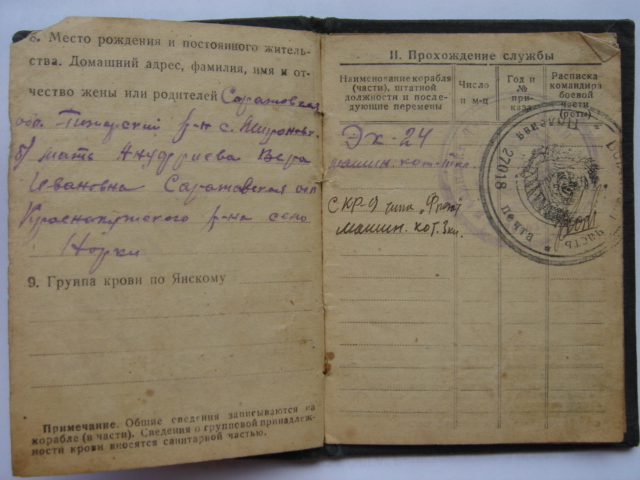 8. Место рождения и постоянного житель-
ства. Домашний адрес, фамилия, имя и от-
чество жены или родителей Саратовская
обл. р-н с.
мать Ануфриева Вера
Ивановна Саратовская обл
Краснокутского р-на село
Норки
9. Группа крови по Янскому
Примечание. Общие сведения записываются на
корабле (в части). Сведения о групповой принадлеж-
ности крови вносятся санитарной частью.
II. Прохождение службы
Наименование корабля
(части), штатной
должности и после-
дующие перемены
Число
и м-ц
Год и
№
при-
каза
Расписка
командира
боевой
части
(роты)
Эк-24
машин. кот.
СКР-9 типа
машин. кот. 3кл.
Полевая
почта
27018
часть